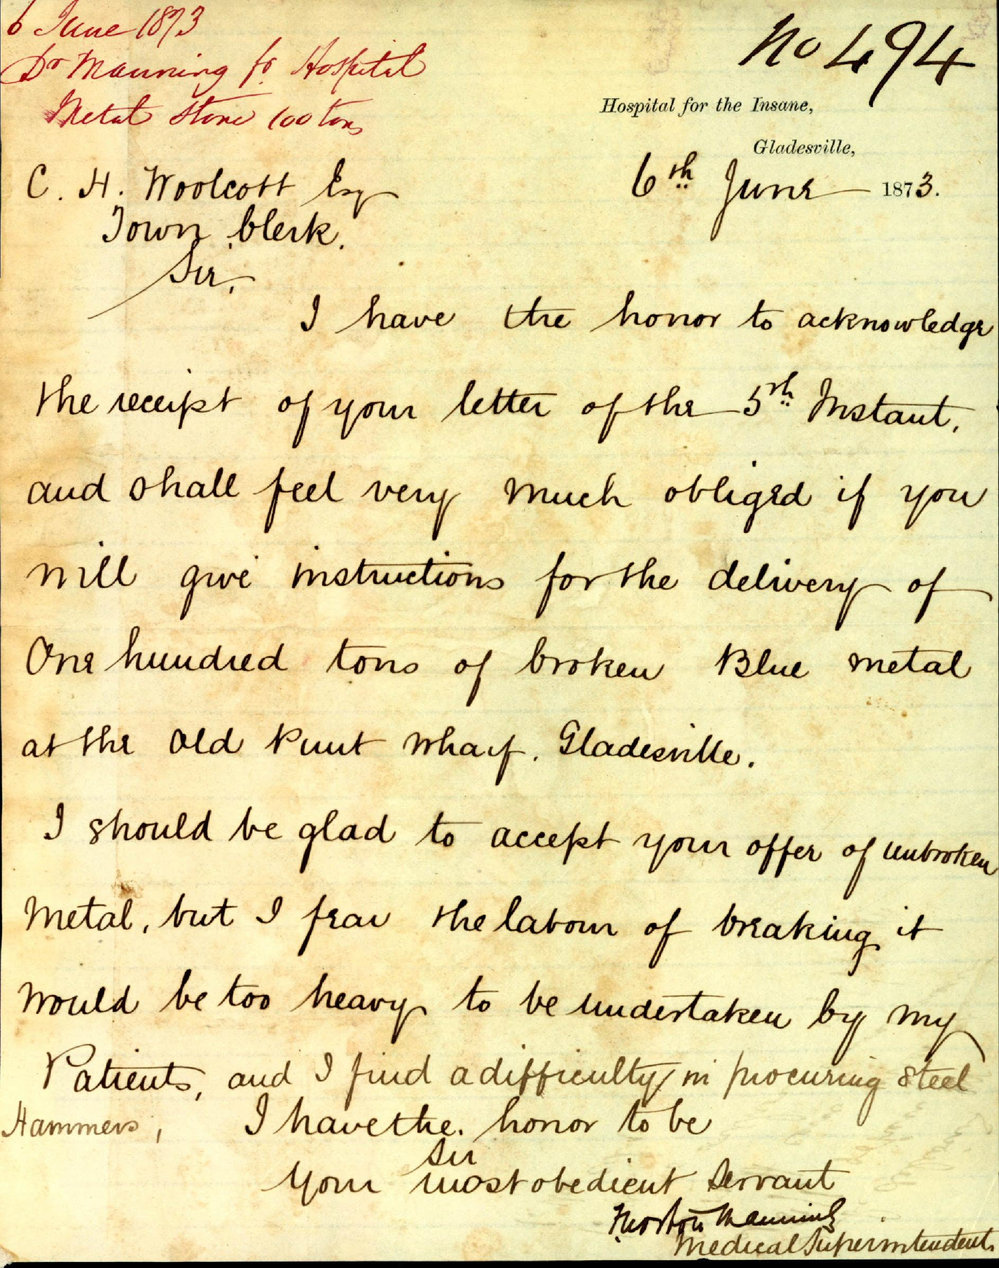 6 June 1873
Dr Manning fr Hospital
Metal Stone 100 tons
No 494
Hospital for the Insane,
Gladesville,
6th June 1873.
C. H. Woolcott Esq
Town Clerk.
Sir,
I have the honor to acknowledge
the receipt of your letter of the 5th Instant,
and shall feel very much obliged if you
will give instructions for the delivery of
One hundred tons of broken Blue metal
at the Old Punt Wharf. Gladesville.
I should be glad to accept your offer of unbroken
Metal, but I fear the labour of breaking it
would be too heavy to be undertaken by my
Patients, and I find a difficulty in procuring steel
Hammers, I have the honor to be
Sir
Your most obedient Servant
F. Norton Manning
Medical Superintendent